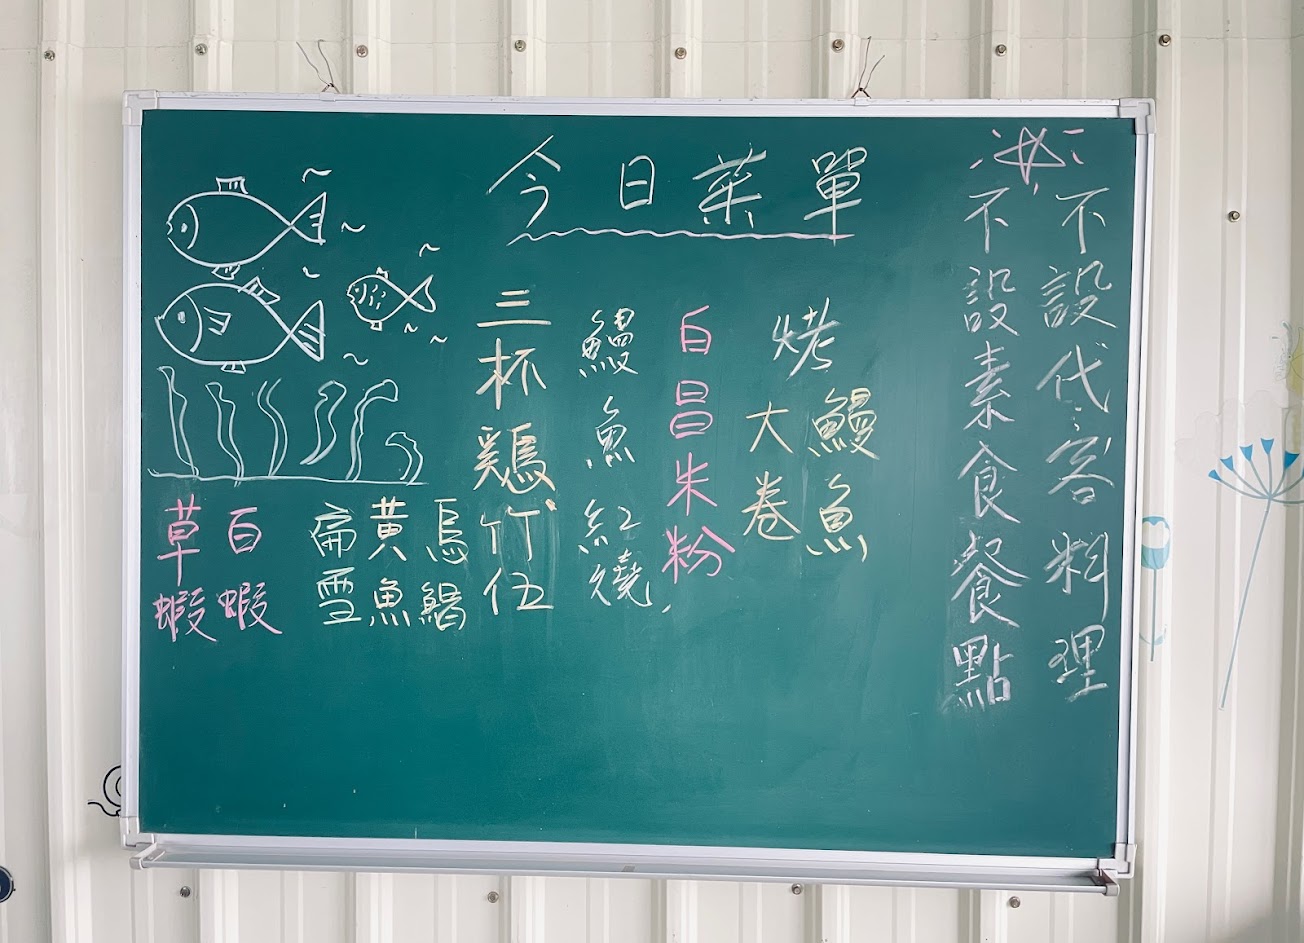 今日菜單
不設代客料理
不設素食餐點
烤
鰻魚
大卷
白昌米粉
鰻魚紅燒
三杯鷄竹伍
烏鯧
黃魚
扁雪
白蝦
草蝦